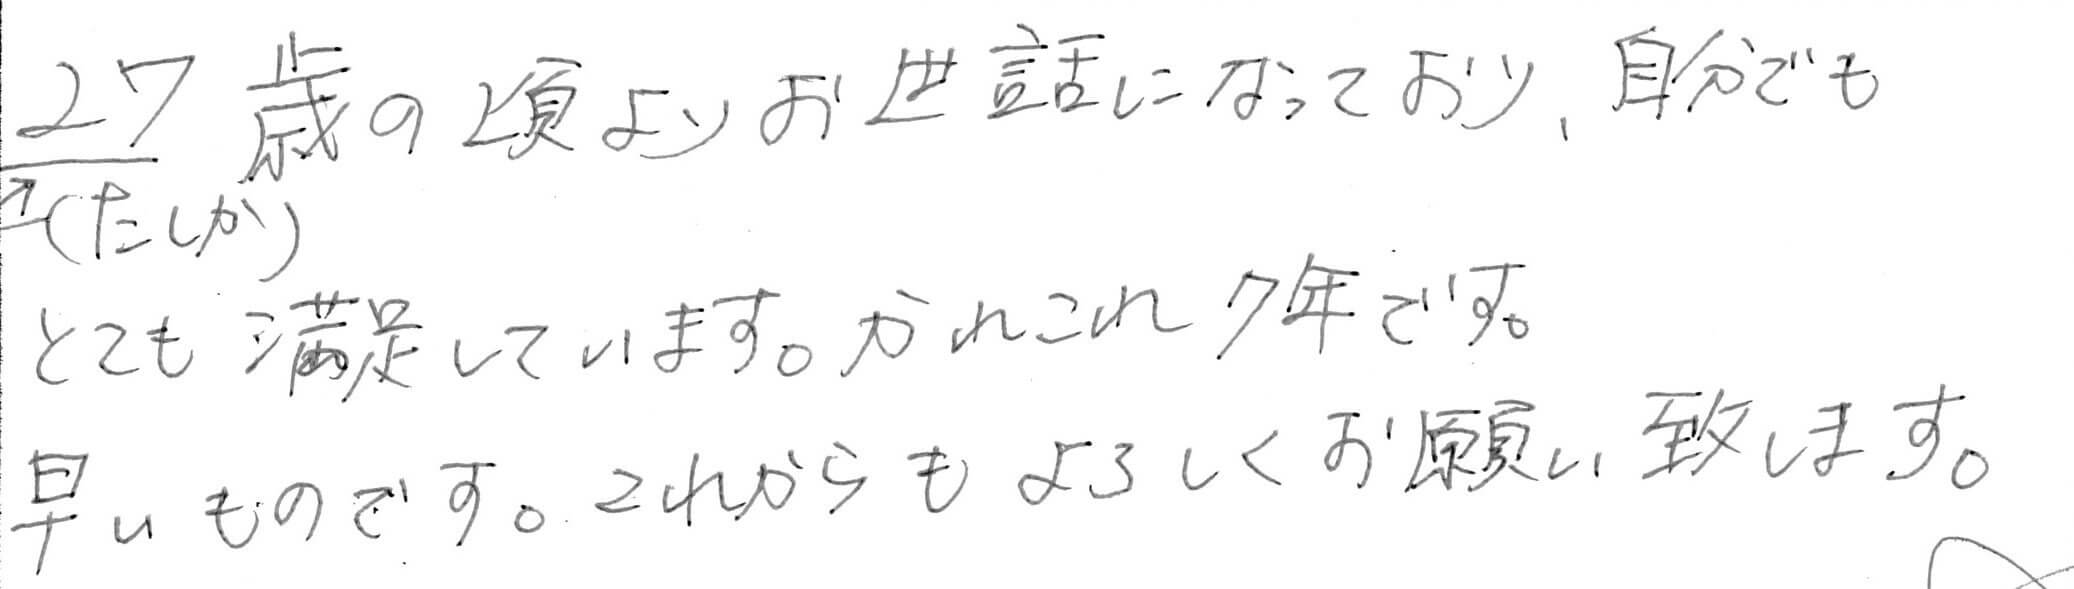 27歳の頃よりお世話になっており、自分でも
↑(たしか)
とても満足しています。かれこれ7年です。
早いものです。これからもよろしくお願い致します。